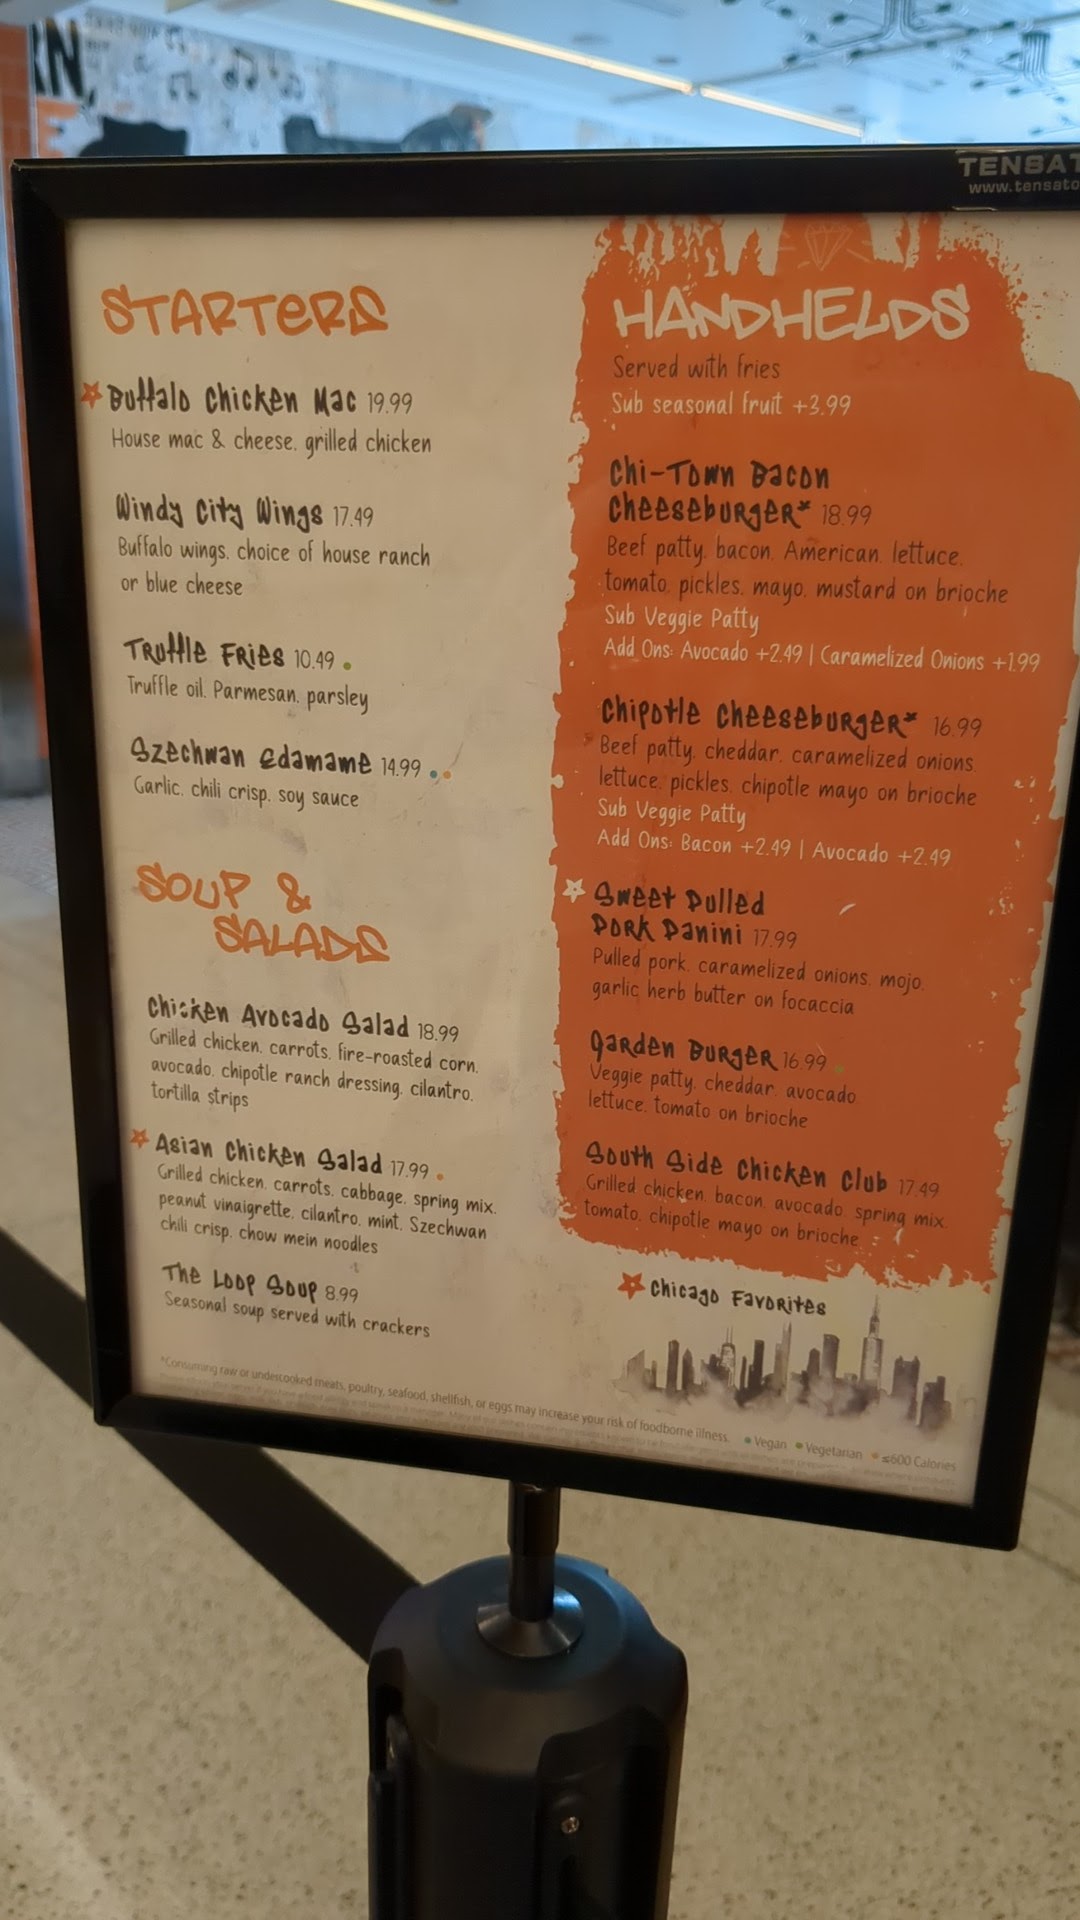 RN,
E
TENSAT
www.tensato
STARTERS
Buffalo Chicken Mac 19.99
House mac & cheese, grilled chicken
Windy City Wings 17.49
Buffalo wings, choice of house ranch
or blue cheese
Truffle Fries 10.49
Truffle oil, Parmesan, parsley
Szechwan Edamame 14.99
Garlic, chili crisp, soy sauce
SOUP &
SALADS
Chicken Avocado Salad 18.99
Grilled chicken, carrots, fire-roasted corn,
avocado, chipotle ranch dressing, cilantro,
tortilla strips
Asian Chicken Salad 17.99
Grilled chicken, carrots, cabbage, spring mix,
peanut vinaigrette, cilantro, mint, Szechwan
chili crisp, chow mein noodles
The Loop Soup 8.99
Seasonal soup served with crackers
HANDHELDS
Served with fries
Sub seasonal fruit +3.99
Chi-Town Bacon
Cheeseburger* 18.99
Beef patty, bacon, American, lettuce,
tomato, pickles, mayo, mustard on brioche
Sub Veggie Patty
Add Ons: Avocado +2.49 | Caramelized Onions +1.99
Chipotle Cheeseburger* 16.99
Beef patty, cheddar, caramelized onions,
lettuce, pickles, chipotle mayo on brioche
Sub Veggie Patty
Add Ons: Bacon +2.49 | Avocado +2.49
Sweet Pulled
Pork Panini 17.99
Pulled pork, caramelized onions, mojo,
garlic herb butter on focaccia
Garden Burger 16.99
Veggie patty, cheddar, avocado
lettuce, tomato on brioche
South Side Chicken Club 17.49
Grilled chicken, bacon, avocado, spring mix,
tomato, chipotle mayo on brioche
Chicago Favorites
*Consuming raw or undercooked meats, poultry, seafood, shellfish, or eggs may increase your risk of foodborne illness.
Vegan Vegetarian ≤600 Calories